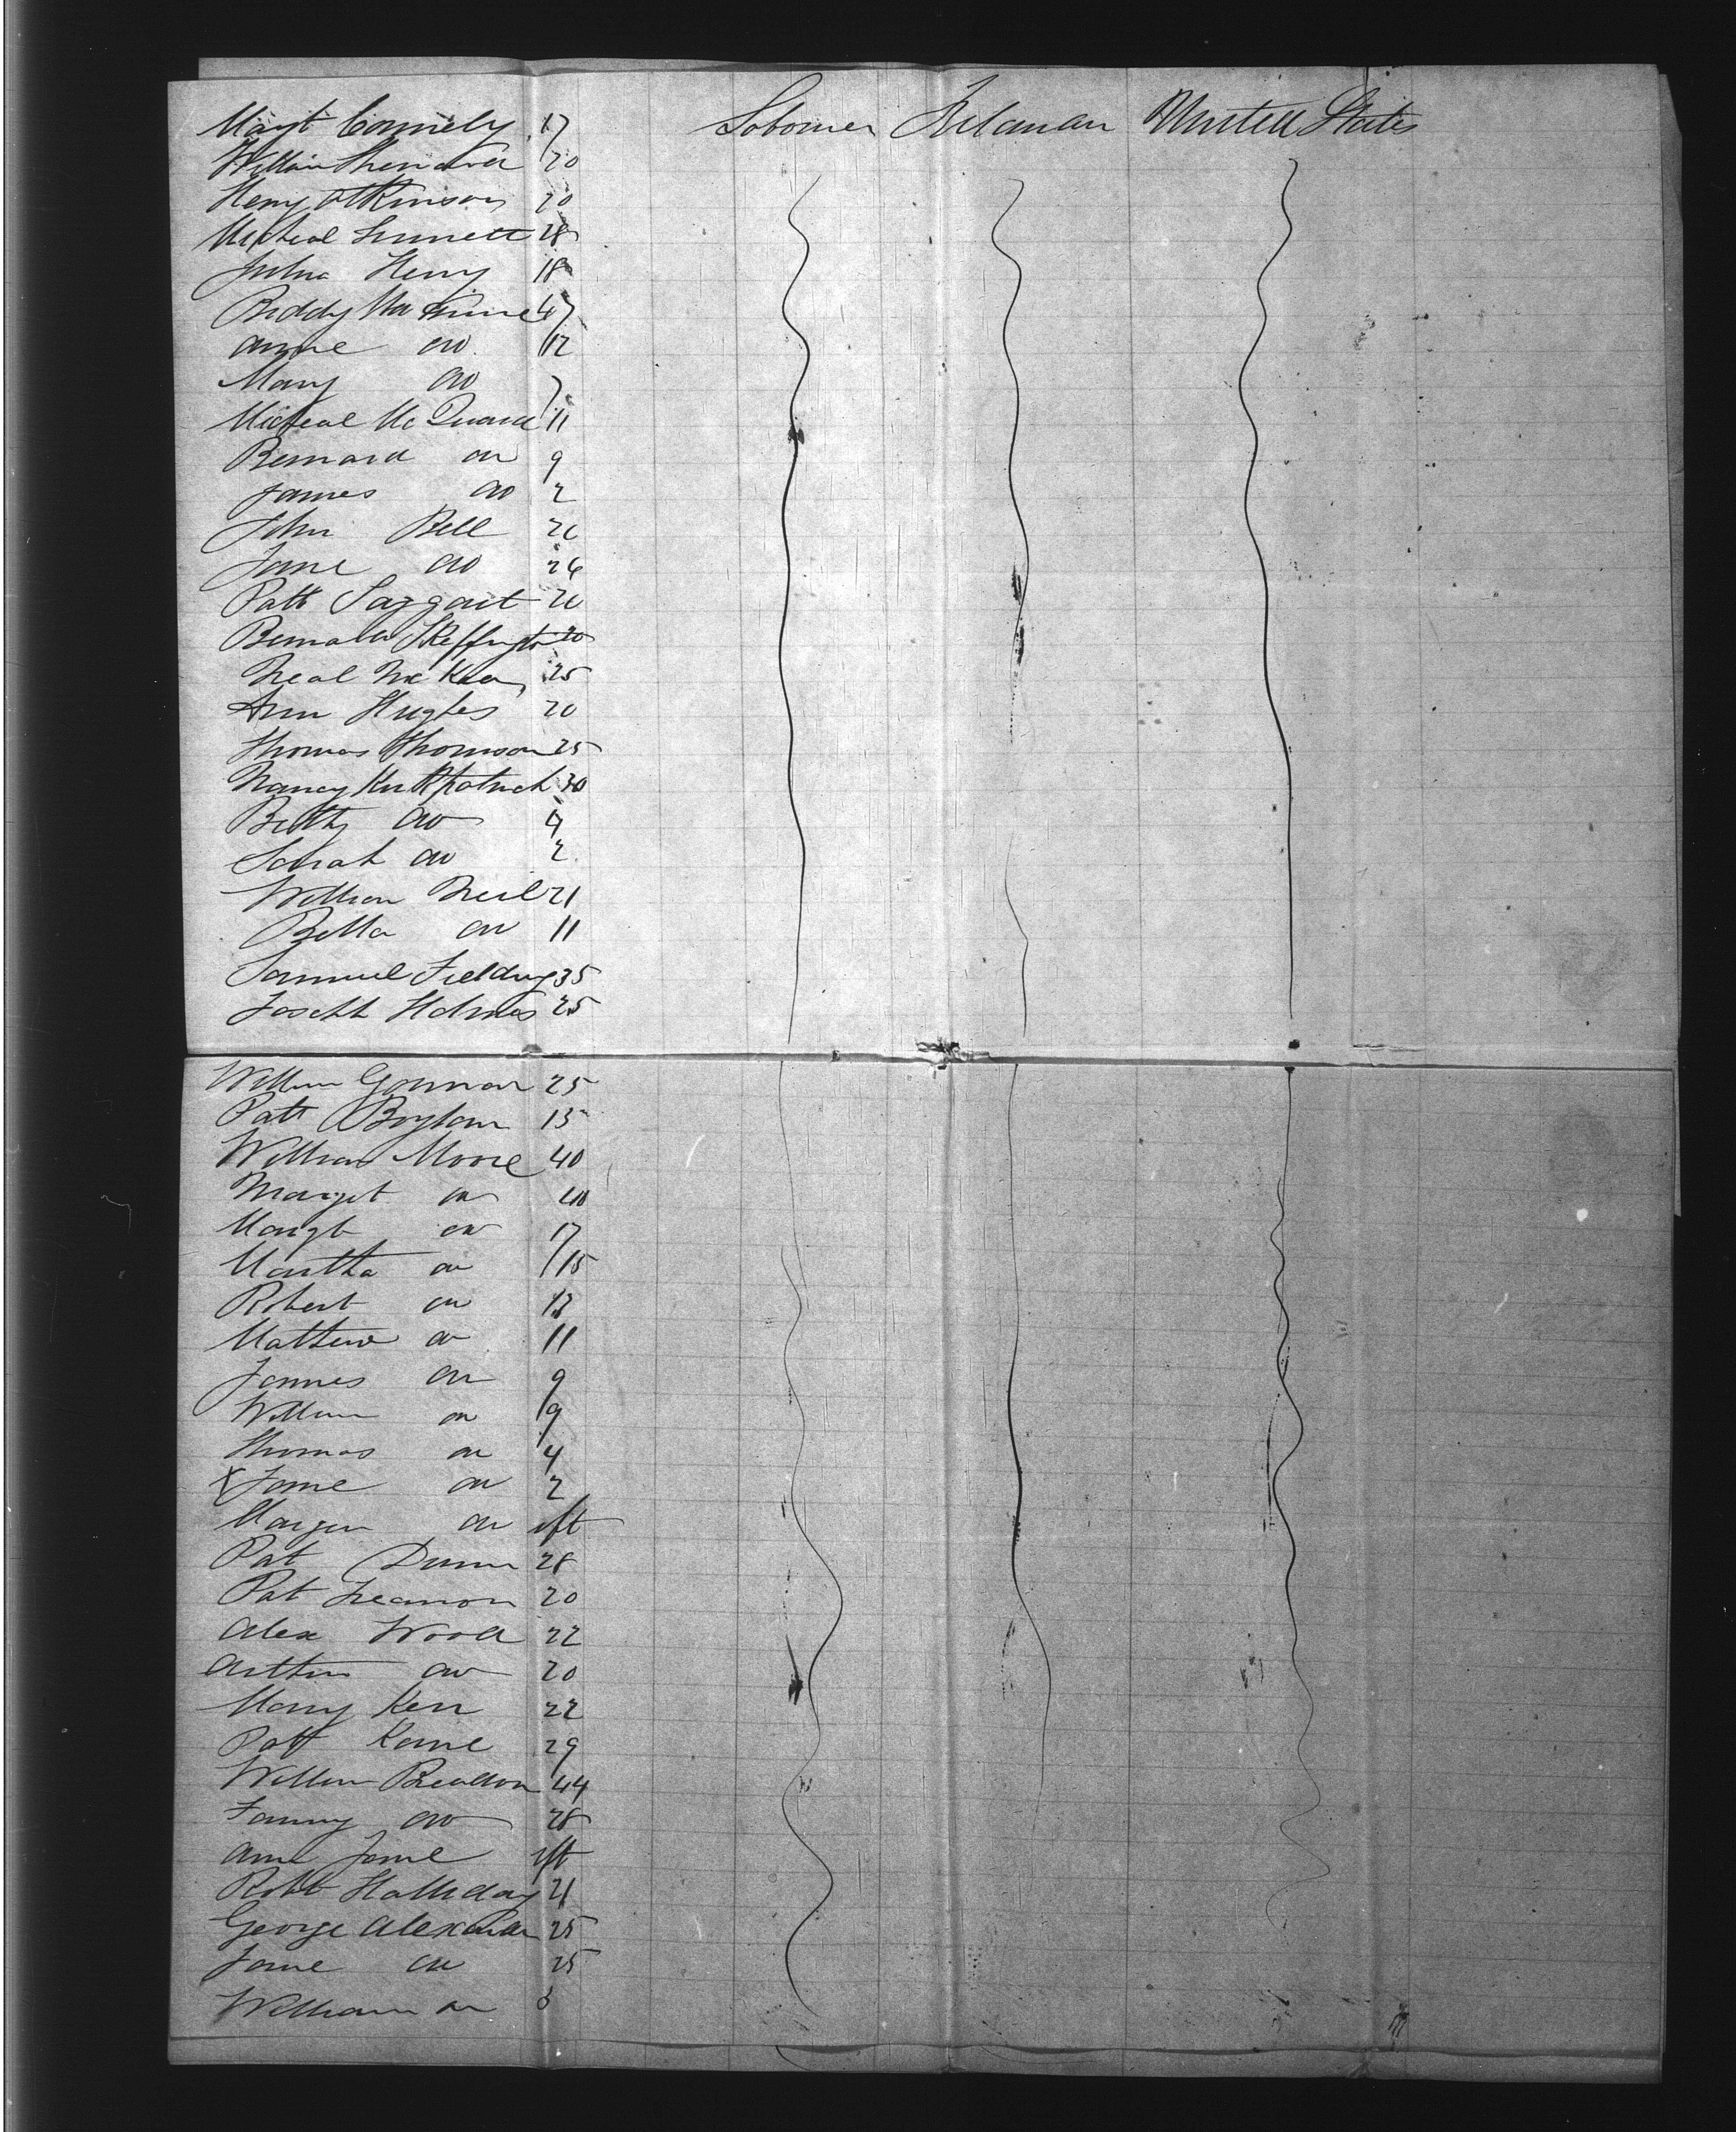 Margt Connely 17 Laborer Ireland United States
William 20
Henry Atkinson 20
Micheal Sinnett 28
Julia Henry 18
Biddy Mc 47
Anne do 12
Mary do 7
Micheal Mc Quaid 11
Bernard do 9
James do 2
John Bell 26
Jane do 26
Patt Taggart 20
Bernard Skeffington 20
Neal McKee 25
Ann Hughes 20
Thomas Thomson 25
Nancy Kirkpatrick 30
Betty do 4
Sarah do 2
William Neil 21
Bella do 11
Samuel Fielding 35
Joseph Holmes 25
William Gorman 25
Patt Boylan 13
William Moore 40
Margt do 40
Margt do 17
Martha do 15
Robert do 13
Mathew do 11
James do 9
William do 9
Thomas do 4
X Jane do 2
do ift
Pat Dunn 28
Pat Leanon 20
Alex Wood 22
Arthur do 20
Mary Kerr 22
Patt Kane 29
William 44
Fanny do 28
Ann Jane ift
Robt Halliday 21
George Alexander 25
Jane do 25
William do 3